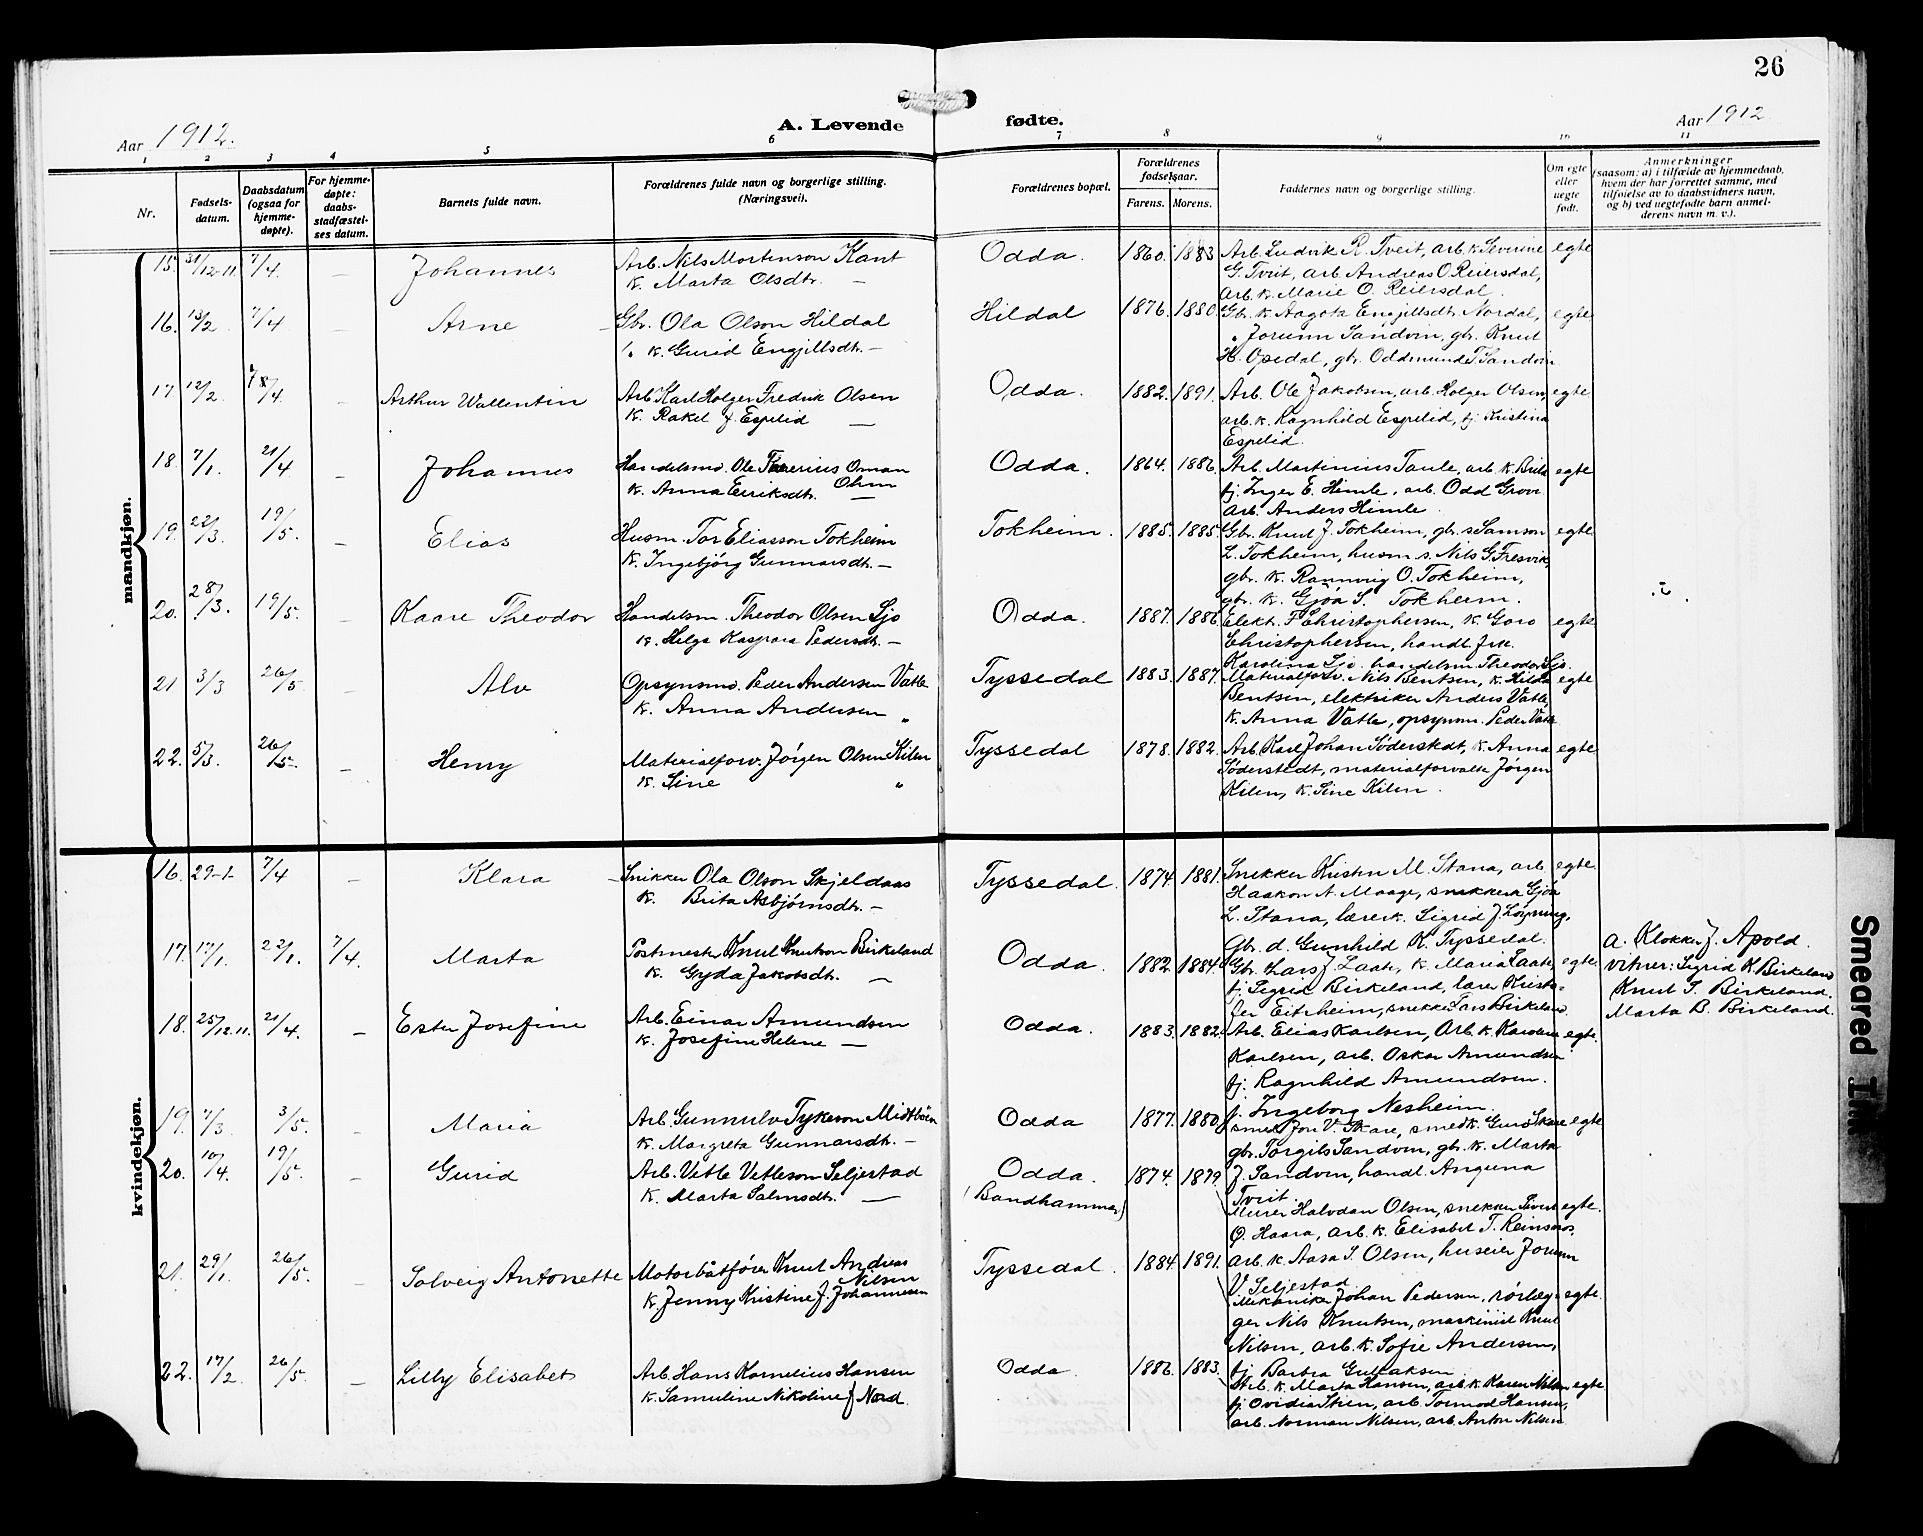 26
Aar 1912.
A. Levende fødte.
Aar 1912
1 2 3 4 5 6 7 8 9 10 11
Nr.
Fødsels-
datum.
Daabsdatum
(ogsaa for
hjemme-
døpte).
For hjemme-
døpte:
daabs-
stadfæstel-
ses datum.
Barnets fulde navn.
Forældrenes fulde navn og borgerlige stilling.
(Næringsvei).
Forældrenes bopæl.
Forældrenes
fødselsaar.
Farens. Morens.
Faddernes navn og borgerlige stilling.
Om egte
eller
uegte
født.
Anmerkninger
(saasom: a) i tilfælde av hjemmedaab,
hvem der har forrettet samme, med
tilføielse av to daabsvidners navn,
og b) ved uegtefødte barn anmel-
derens navn m. v.).
mandkjøn.
15. 31/12-11. 7/4. — Johannes
Arb. Nils Mortenson Kant
K. Marta Olsdtr. —
Odda. 1860. 1883
Arb. Ludvik R. Tveit, arb. k. Severine
G. Tveit, arb. Andreas O. Reiersdal,
Arb. k. Marie O. Reiersdal.
egte
16. 13/2 7/4 — Arne
Gbr. Ola Olson Hildal
" k. Gurid Engjillsdtr. —
Hildal 1876. 1880.
Gbr. k. Aagota Engjillsdtr. Nordal,
" Jorunn Sandvin, gbr. Knut
H. Opedal, gbr. Oddmund T. Sandvin
egte
17. 12/2 8/4 — Arthur Wallentin
Arb. Karl Holger Fredrik Olsen
K. Rakel f. Espelid —
Odda. 1882. 1891.
Arb. Ole Jakobsen, arb. Holger Olsen,
arb. k. Ragnhild Espelid, fj. Kristina
Espelid.
egte
18. 7/1. 21/4 — Johannes
Handelsm. Ole Oman
Ohm
K. Anna Eiriksdtr. —
Odda. 1864. 1886.
Arb. Martinius Taule, arb. k. Brita
fj. Inger E. Himle, arb. Odd Grove
Arb. Anders Himle.
egte
19. 22/3. 19/5. — Elias
Husm. Tor Eliasson Tokheim
K. Ingebjörg Gunnarsdtr. —
Tokheim. 1885. 1885.
Gbr. Knut J. Tokheim, gbr. s. Samson
L. Tokheim, husm. s. Nils G. Fresvik,
gbr. k. Rannveig O. Tokheim,
gbr. k. Gjöa S. Tokheim.
egte
20. 28/3. 19/5. — Kaare Theodor
Handelsm. Theodor Olsen Sjo
K. Helga Kaspara Pedersdtr. —
Odda. 1887. 1886
Elekt. F. Christophersen, K. Goro
Christophersen, handl. frk.
Karolina Sjo. handelsm. Theodor Sjo.
egte
21 3/3 26/5 — Alv
Opsynsm. Peder Andersen Vatle
K. Anna Andersen "
Tyssedal 1883. 1887.
Materialforv. Nils Bentsen, K. Hilda
Bentsen, elektriker Anders Vatle,
K. Anna Vatle, opsynsm. Peder Vatle
egte
22. 5/3. 26/5. — Henry
Materialforv. Jørgen Olsen Kilen
K. Sine "
Tyssedal 1878. 1882.
Arb. Karl Johan Söderstedt, K. Anna
Söderstedt, materialforvalte Jørgen
Kilen, K. Sine Kilen.
egte
kvindekjøn.
16. 29-1- 7/4 — Klara
Snikker Ola Olson Skjeldaas
K. Brita Asbjørnsdtr. —
Tyssedal. 1874. 1881.
Snekker Kristen M. Stana, arb.
Haakon A. Maage, snekker k. Gjöa
L. Stana, lærer k. Sigrid J. Löyning,
Gbr. d. Gunhild K. Tyssedal.
egte
17. 17/1. 22/1. 7/4. Marta
Postmester Knut Knutson Birkeland
K. Gyda Jakobsdtr. —
Odda. 1882. 1884.
Gbr. Lars J. Laate, K. Maria Laate,
fj. Sigrid Birkeland, lærer Kristo-
fer Eitrheim, snekker Lars Birkeland.
egte
a. Klokker J. Apold.
vitner: Sigrid K. Birkeland
Knut T. Birkeland.
Marta B. Birkeland.
18. 25/12.11. 21/4. — Ester Josefine
Arb. Einar Amundsen
K. Josefine Helene —
Odda. 1883. 1882.
Arb. Elias Karlsen, Arb. k. Karoline
Karlsen, arb. Oskar Amundsen
fj. Ragnhild Amundsen.
egte.
19. 7/3. 3/5. — Maria
Arb. Gunnulv Tykeson Midtböen
K. Margreta Gunnarsdtr. —
Odda 1877. 1880.
f. Ingeborg Nesheim,
smed Jon V. Skare, smed k. Guro Skare
gbr. Torgils Sandven, gbr. k. Marta
J. Sandven, handl. Anguna
Tveit.
egte
20. 10/4. 19/5. — Gurid
Arb. Vetle Vetleson Seljestad
K. Marta Salmsdtr. —
Odda.
(Bandhammar)
1874. 1879.
Murer Halvdan Olsen, snekker Sivert
O. Haara, arb. k. Elisabet T. Reinsnos,
arb. k. Aasa S. Olsen, huseier Jorunn
V. Seljestad
egte.
21. 29/1. 26/5. — Solveig Antonette
Motorbåtfører Knut Andreas
Nilsen
K. Jenny Kristine J. Johannesen
Tyssedal. 1884. 1891.
Mekaniker Johan Pedersen, rörlæg-
ger Nils Knutsen, maskinist Knut
Nilsen, arb. k. Sofie Andersen,
fj. Barbra Gullaksen
egte.
22. 17/2. 26/5. — Lilly Elisabet
Arb. Hans Kornelius Hansen
K. Samueline Nikoline f. Nord.
Odda 1886. 1883.
Arb. k. Marta Hansen, arb. k. Karen Nilsen
fj. Ovidia Stien, arb. Tormod Hansen,
arb. Norman Nilsen, arb. Anton Nilsen
egte
Smeared Ink